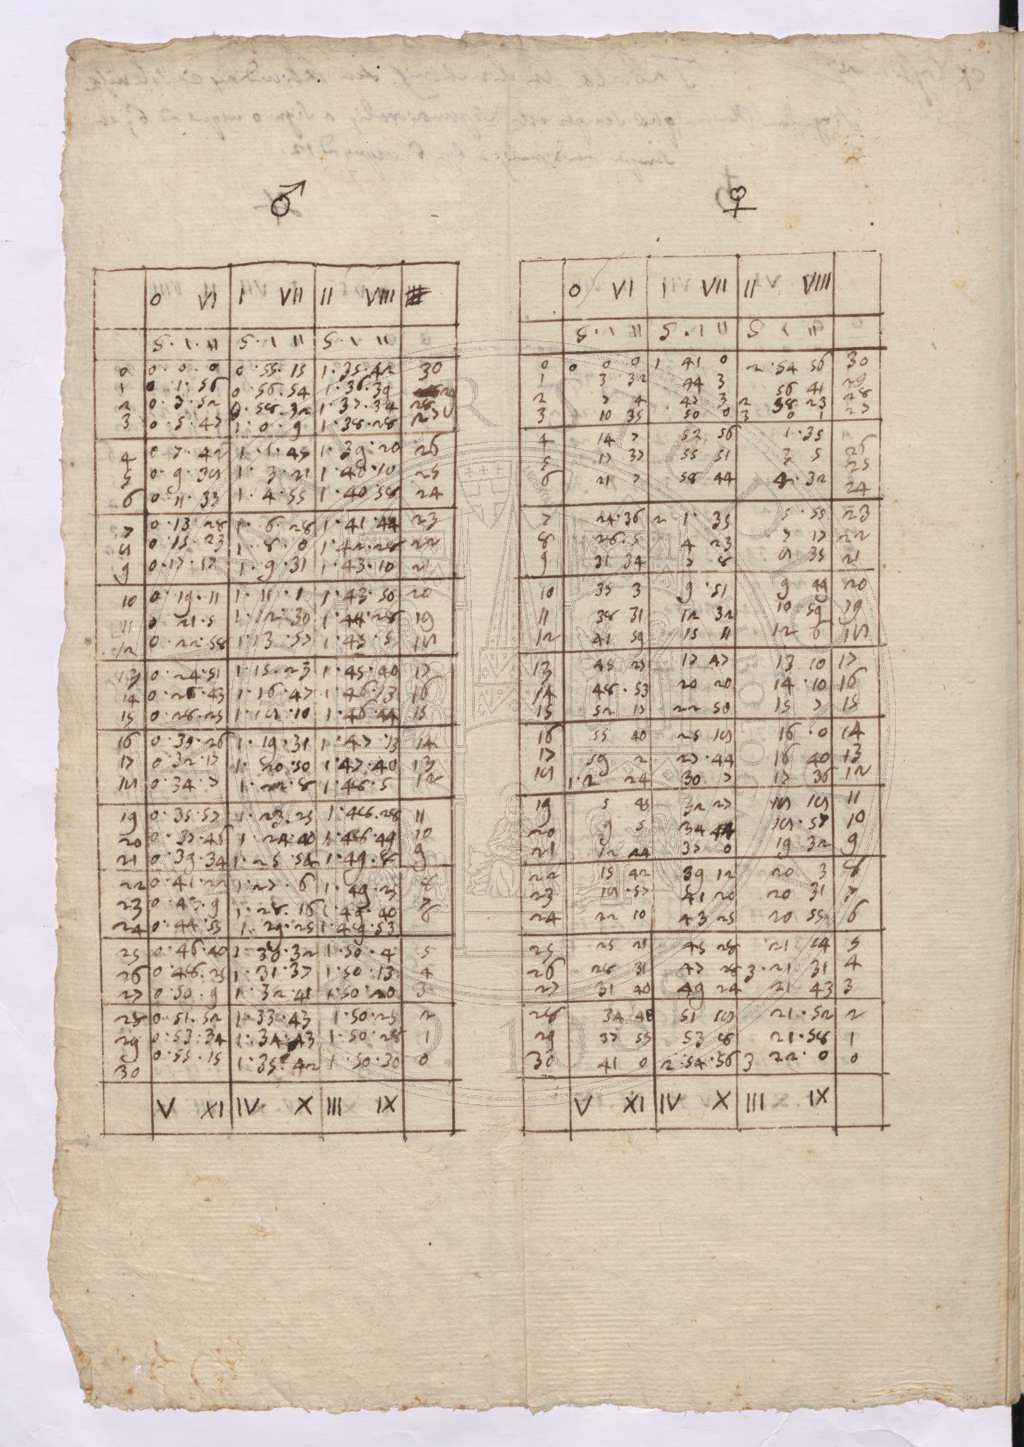 ♂
0 VI I VII II VIII
S · I · II S · I · II S · I · II
0 0·0·0 0·55·15 1·35·42 30
1 0·1·56 0·56·54 1·36·39 29
2 0·3·52 0·58·32 1·37·34 28
3 0·5·47 1·0·9 1·38·28 27
4 0·7·42 1·1·45 1·39·20 26
5 0·9·38 1·3·21 1·40·10 25
6 0·11·33 1·4·55 1·40·58 24
7 0·13·28 1·6·28 1·41·44 23
8 0·15·23 1·8·0 1·42·28 22
9 0·17·17 1·9·31 1·43·10 21
10 0·19·11 1·11·1 1·43·50 20
11 0·21·5 1·12·30 1·44·28 19
12 0·22·58 1·13·57 1·45·5 18
13 0·24·51 1·15·23 1·45·40 17
14 0·26·43 1·16·47 1·46·13 16
15 0·28·25 1·18·10 1·46·44 15
16 0·30·26 1·19·31 1·47·13 14
17 0·32·17 1·20·50 1·47·40 13
18 0·34·7 1·22·8 1·48·5 12
19 0·35·57 1·23·25 1·48·28 11
20 0·37·46 1·24·40 1·48·49 10
21 0·39·34 1·25·54 1·49·8 9
22 0·41·22 1·27·6 1·49·25 8
23 0·43·9 1·28·16 1·49·40 7
24 0·44·55 1·29·25 1·49·53 8
25 0·46·40 1·30·32 1·50·4 5
26 0·48·25 1·31·37 1·50·13 4
27 0·50·9 1·32·41 1·50·20 3
28 0·51·52 1·33·43 1·50·25 2
29 0·53·34 1·34·43 1·50·28 1
30 0·55·15 1·35·42 1·50·30 0
V XI IV X III IX
♀
0 VI I VII II VIII
S · I · II S · I · II S I II
0 0 0 0 1 41 0 2·54 56 30
1 3 32 44 3 56 41 29
2 7 4 47 3 2 58 23 28
3 10 35 50 0 3 0 1 27
4 14 7 52 56 1·35 26
5 17 37 55 51 3 5 25
6 21 7 58 44 4·32 24
7 24·36 2 1·35 5·55 23
8 28·5 4 23 7 17 22
9 31 34 7 8 8 35 21
10 35 3 9·51 9 49 20
11 38 31 12 32 10 59 19
12 41 59 15 11 12 6 18
13 45 25 17 47 13 10 17
14 48·53 20 20 14·10 16
15 52 17 22 50 15 7 15
16 55 40 25 18 16·0 14
17 59 2 27·44 16 40 13
18 1·2 24 30 7 17 36 12
19 5 45 32 27 18 18 11
20 9 5 34 44 18·57 10
21 12 24 37 0 19 32 9
22 15 42 39 12 20 3 8
23 18·57 41 20 20 31 7
24 22 10 43 25 20 55 6
25 25 21 45 28 21 14 5
26 28 31 47 28 3·21 31 4
27 31 40 49 24 21 43 3
28 34 48 51 18 21·52 2
29 37 55 53 8 21·58 1
30 41 0 2·54·56 3 22·0 0
V XI IV X III IX